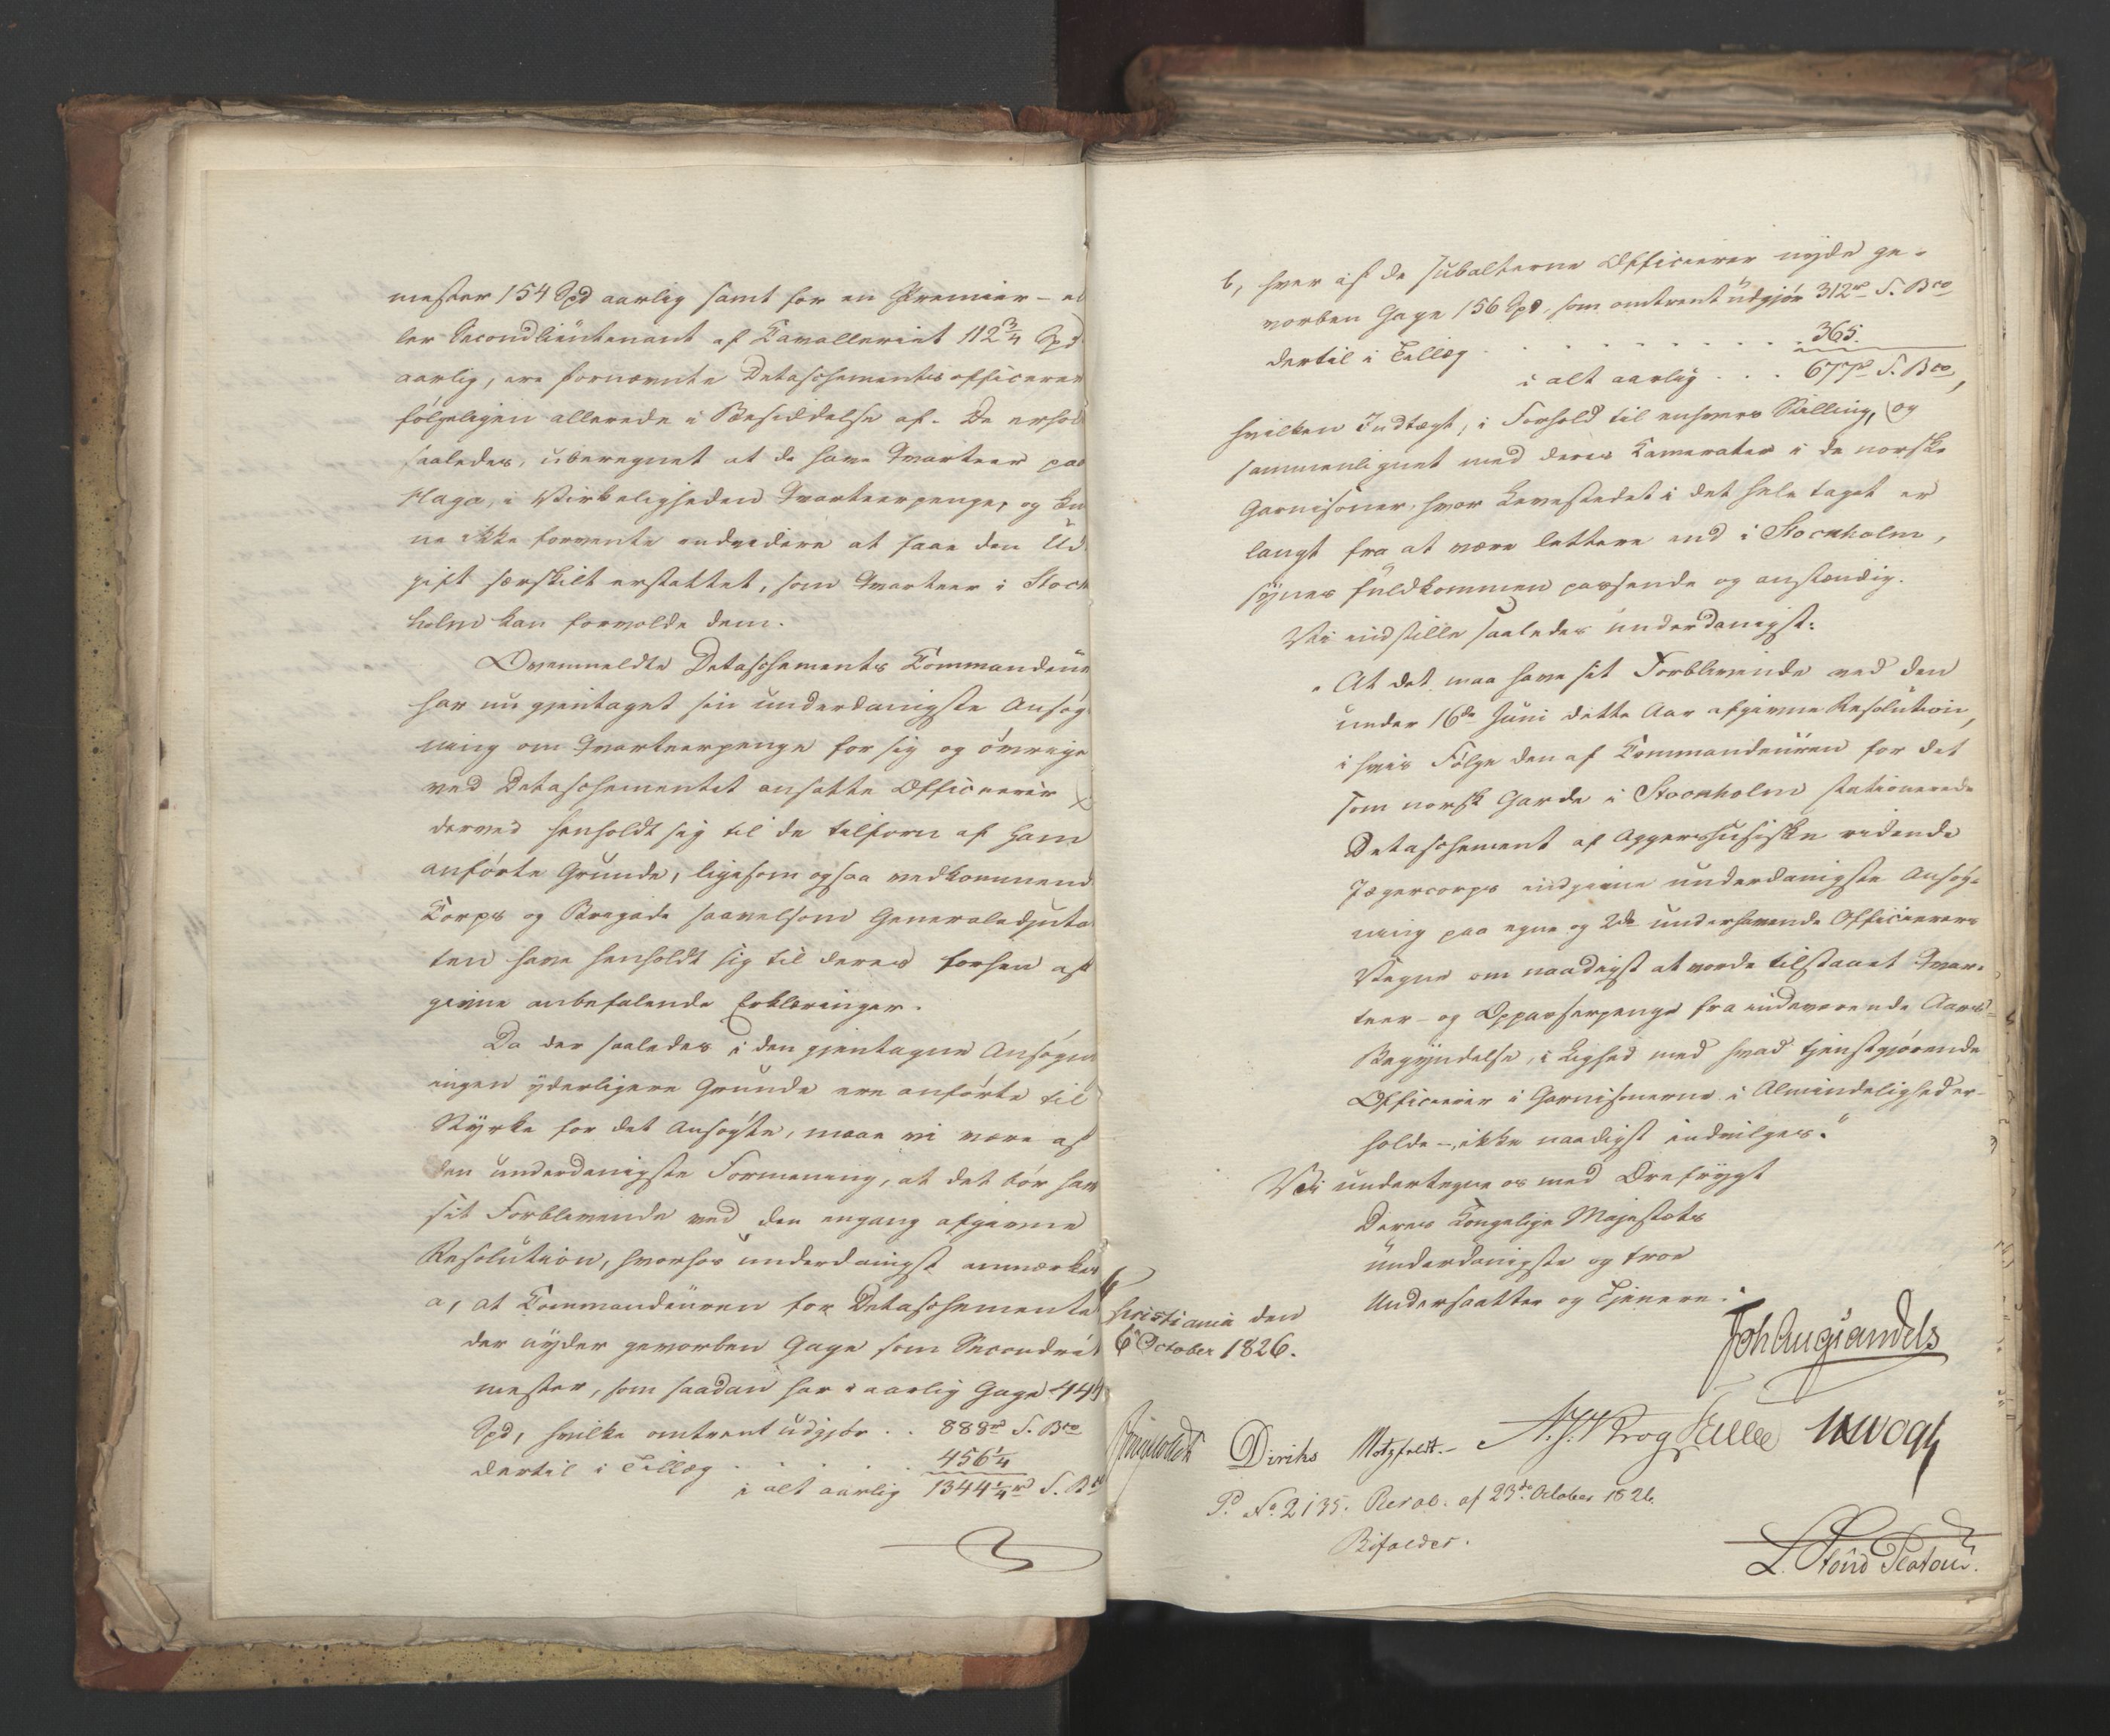 mester 154 Spd aarlig samt for en Premier – el
ler Secondlieutenant af Cavalleriet 112 3/4 Spd
aarlig, ere fornævnte Detaschementsofficerer
følgeligen allerede i Besiddelse af. De erhol
saaledes, uberegnet at de have Qvarteer paa
Haga, i Virkeligheden Qvarteerpenge, og kun
ne ikke forvente endvidere at faae den Ud
gift særskilt erstattet, som Qvarteer i Stock
holm kan forvolde dem.
Ovenmeldte Detaschements Commandeur
har nu gjentaget sin underdanigste Ansøg
ning om Qvarteerpenge for sig og øvrige
ved Detaschementet ansatte Officierer
derved henholdt sig til de tilforn af ham
anførte Grunde, ligesom ogsaa vedkommend
Corps og Brigade saavelsom Generaladjuta
ten have henholdt sig til deres forhen af
givne anbefalende Erklæringer.
Da der saaledes i den gjentagne Ansøgn
ingen yderligere Grunde ere anførte til
Styrke for det Ansøgte, maae vi være af
den underdanigste Formening, at det bør have
sit Forblivende ved den engang afgivne
Resolution, hvorhos underdanigst anmærkes
a, at Commandeuren for Detaschemente
der nyder geworben Gage som Secondrit
mester, som saadan har i aarlig Gage 444
Spd, hvilke omtrent udgjør . . 888 rd S. Bco
dertil i Tillæg . . . . . 456 1/4
i alt aarlig 1344 1/4 rd S. Bco
b, hver af de subalterne Officierer nyde ge-
vorben Gage 156 Spd, som omtrent udgjør 312 rd S. Bco
dertil i Tillæg . . . . . . . . . 365.
i alt aarlig . . . 677 rd S. Bco,
hvilken Indtægt, i Forhold til enhvers Stilling, og
sammenlignet med deres Kamerater i de norske
Garnisoner, hvor Levestedet i det hele taget er
langt fra at være lettere end i Stockholm,
synes fuldkommen passende og anstændig.
Vi indstille saaledes underdanigst:
"At det maa have sit Forblivende ved den
under 16de Juni dette Aar afgivne Resolution,
i hvis Følge den af Commandeuren for det
som norsk Garde i Stockholm stationerede
Detaschement af Aggershusiske ridende
Jægercorps indgivne underdanigste Ansøg-
ning paa egne og 2de underhavende Officierers
Vegne om naadigst at vorde tilstaaet Qvar-
teer- og Oppasserpenge fra indeværende Aars
Begyndelse, i Lighed med hvad tjenstgjørende
Officierer i Garnisonerne i Almindelighed er-
holde –, ikke naadigst indvilges."
Vi undertegne os med Ærefrygt
Deres Kongelige Majestæts
underdanigste og troe
Undersaatter og Tjenere.
Christiania den
6 October 1826.
Joh Aug Sandels
Diriks Motzfeldt. – Krog Collett
P. No. 2135. Resol. af 23de October 1826.
Bifaldes.